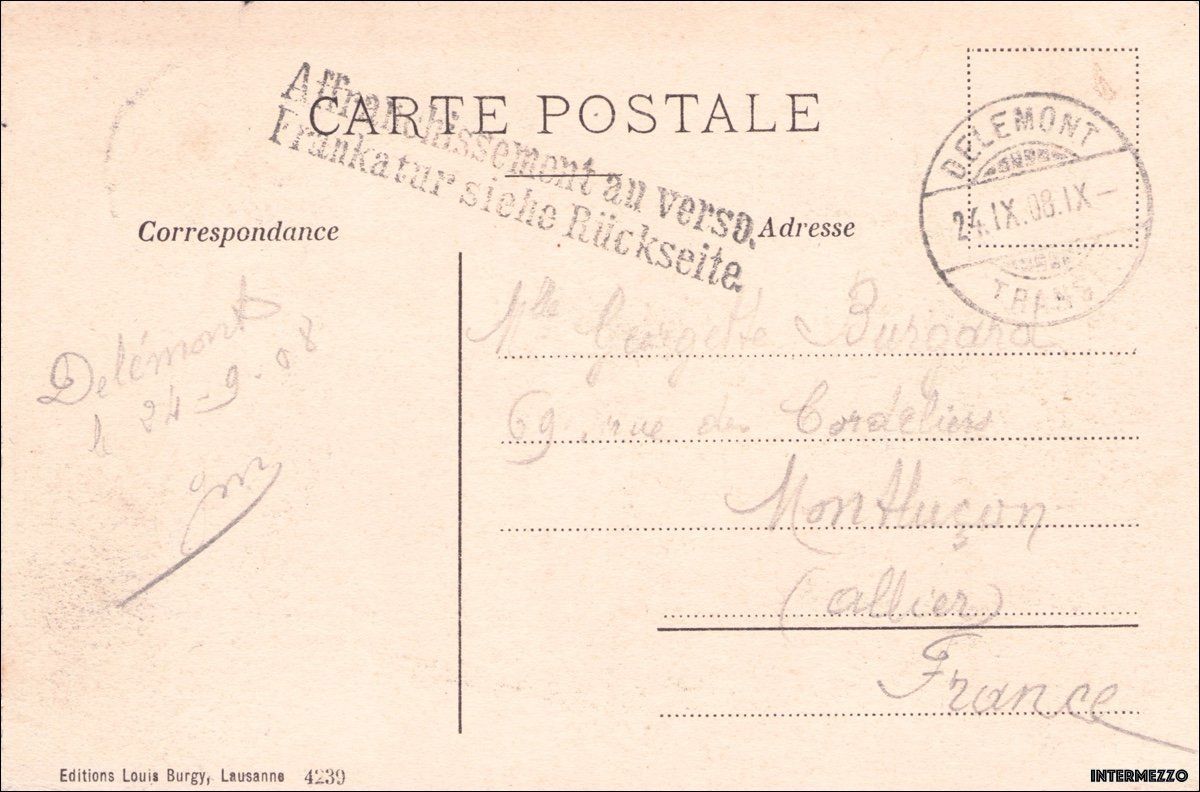 CARTE POSTALE
Affranchissement au verso.
Frankatur siehe Rückseite.
DELEMONT
24.IX.08.IX-
TRANS
Correspondance
Adresse
Delémont
le 24-9-08
Mlle Georgette Burgard
69, rue des Cordeliers
Montluçon
(Allier)
France
Editions Louis Burgy, Lausanne 4239
INTERMEZZO